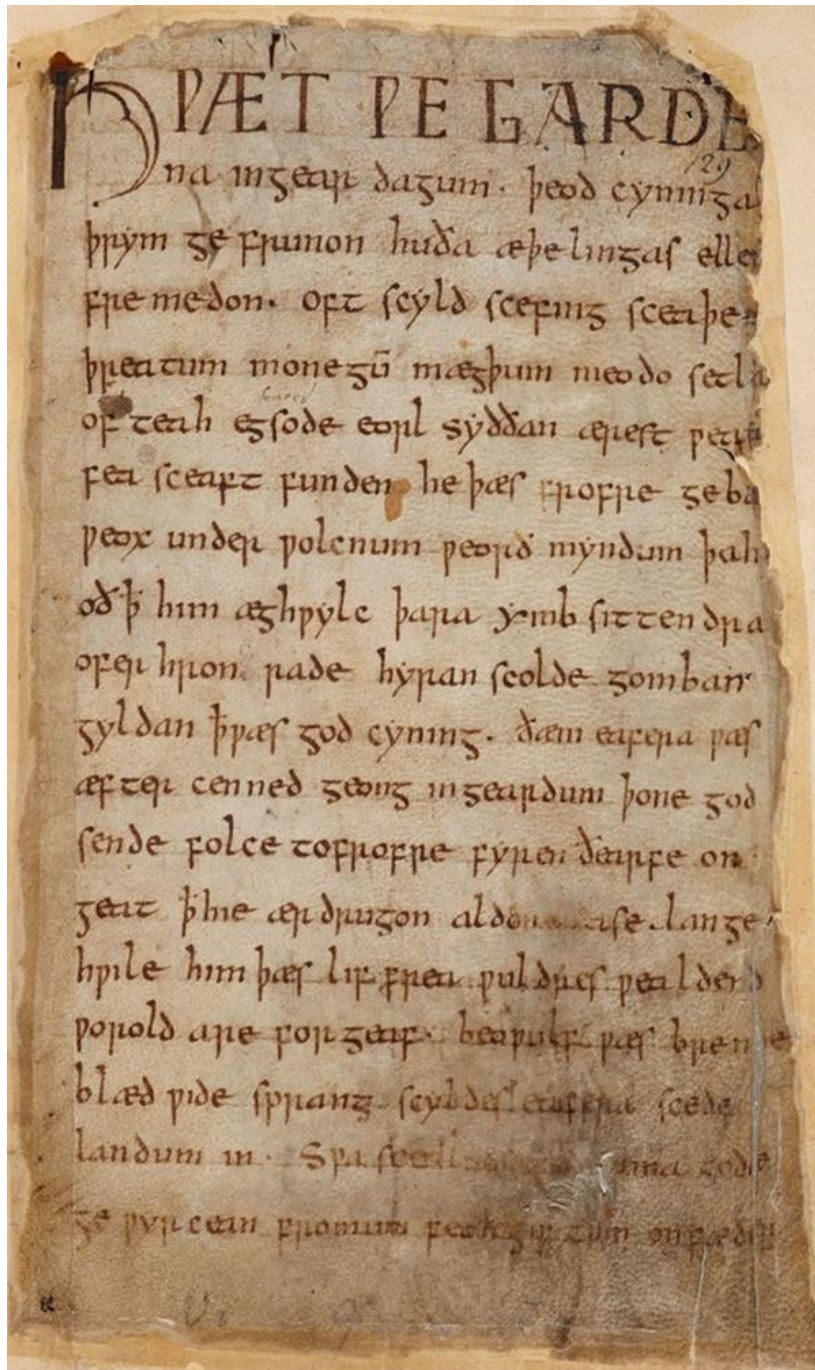 HǷÆT ǷE GARDE
129
na ingear dagum. þeod cyninga
þrym ge frunon huða æþelingas ellen
fre medon. oft scyld scefing sceaþe
þreatum monegū mægþum meodo setla
of teah egsode eorl syððan ærest ƿear
fea sceaft funden he þæs frofre geba
ƿeox under ƿolcnum ƿeorð myndum þah
oð ꝥ him æghƿylc þara ymb sittendra
ofer hron rade hyran scolde gomban
gyldan ꝥ ƿæs god cyning. ðæm eafera ƿæs
æfter cenned geong ingeardum þone god
sende folce tofrofre fyren ðearfe on
geat ꝥ hie ær drugon aldor ase. lange
hƿile him þæs lif frea ƿuldres ƿealdend
ƿorold are for geaf. beoƿulf ƿæs breme
blæd ƿide sprang scyldes eafera scede
landum in. Sƿa sceal uma gode
ge ƿyrcean fromum feoh giftum on fæder